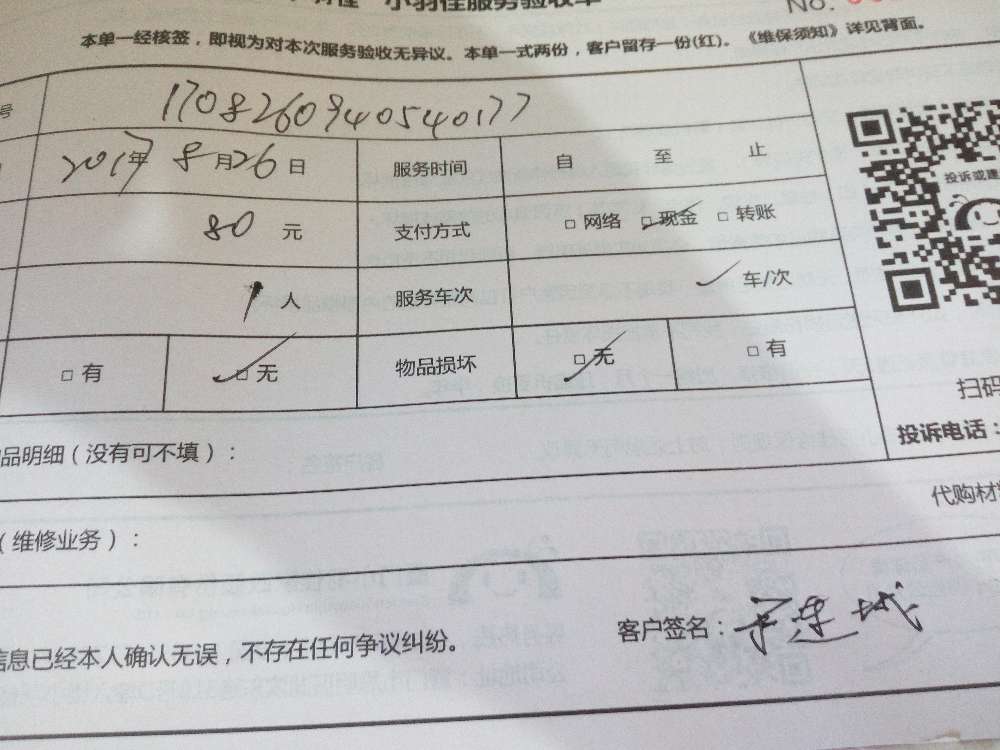 小羽佳服务验收单
No.
本单一经核签，即视为对本次服务验收无异议。本单一式两份，客户留存一份(红)。《维保须知》详见背面。
号 1708260940540177
2017年 8月26日 服务时间 自 至 止
80 元 支付方式 □ 网络 ☑ 现金 □ 转账
1 人 服务车次 ✓ 车/次
□ 有 ☑ 无 物品损坏 ☑ 无 □ 有
投诉或建
扫码
投诉电话：
品明细（没有可不填）：
代购材
（维修业务）：
信息已经本人确认无误，不存在任何争议纠纷。
客户签名：连城